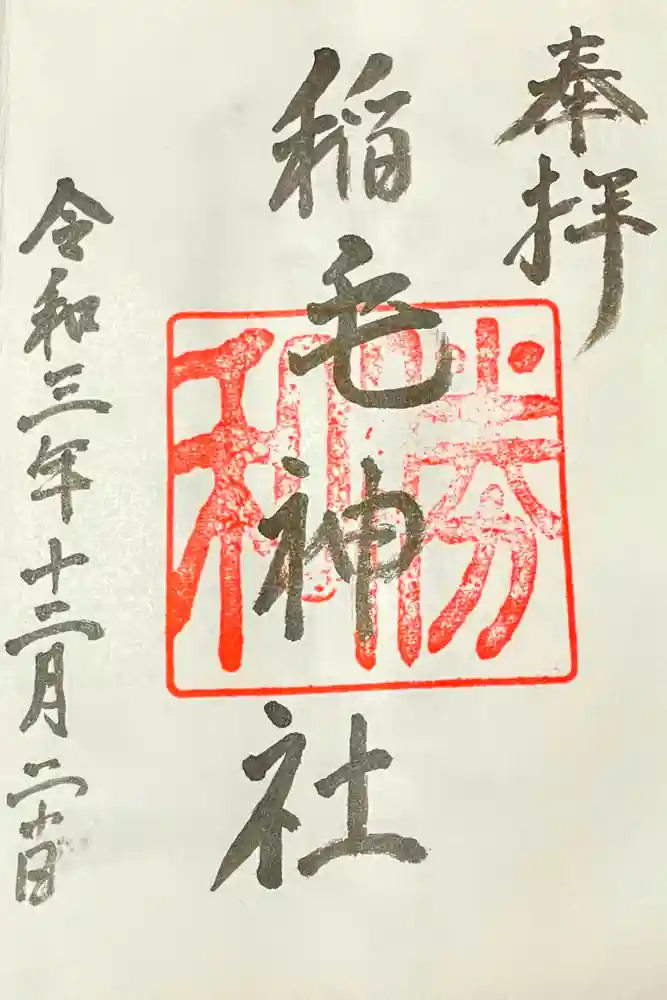 奉拝
稲毛神社
勝利
令和三年十二月二十日